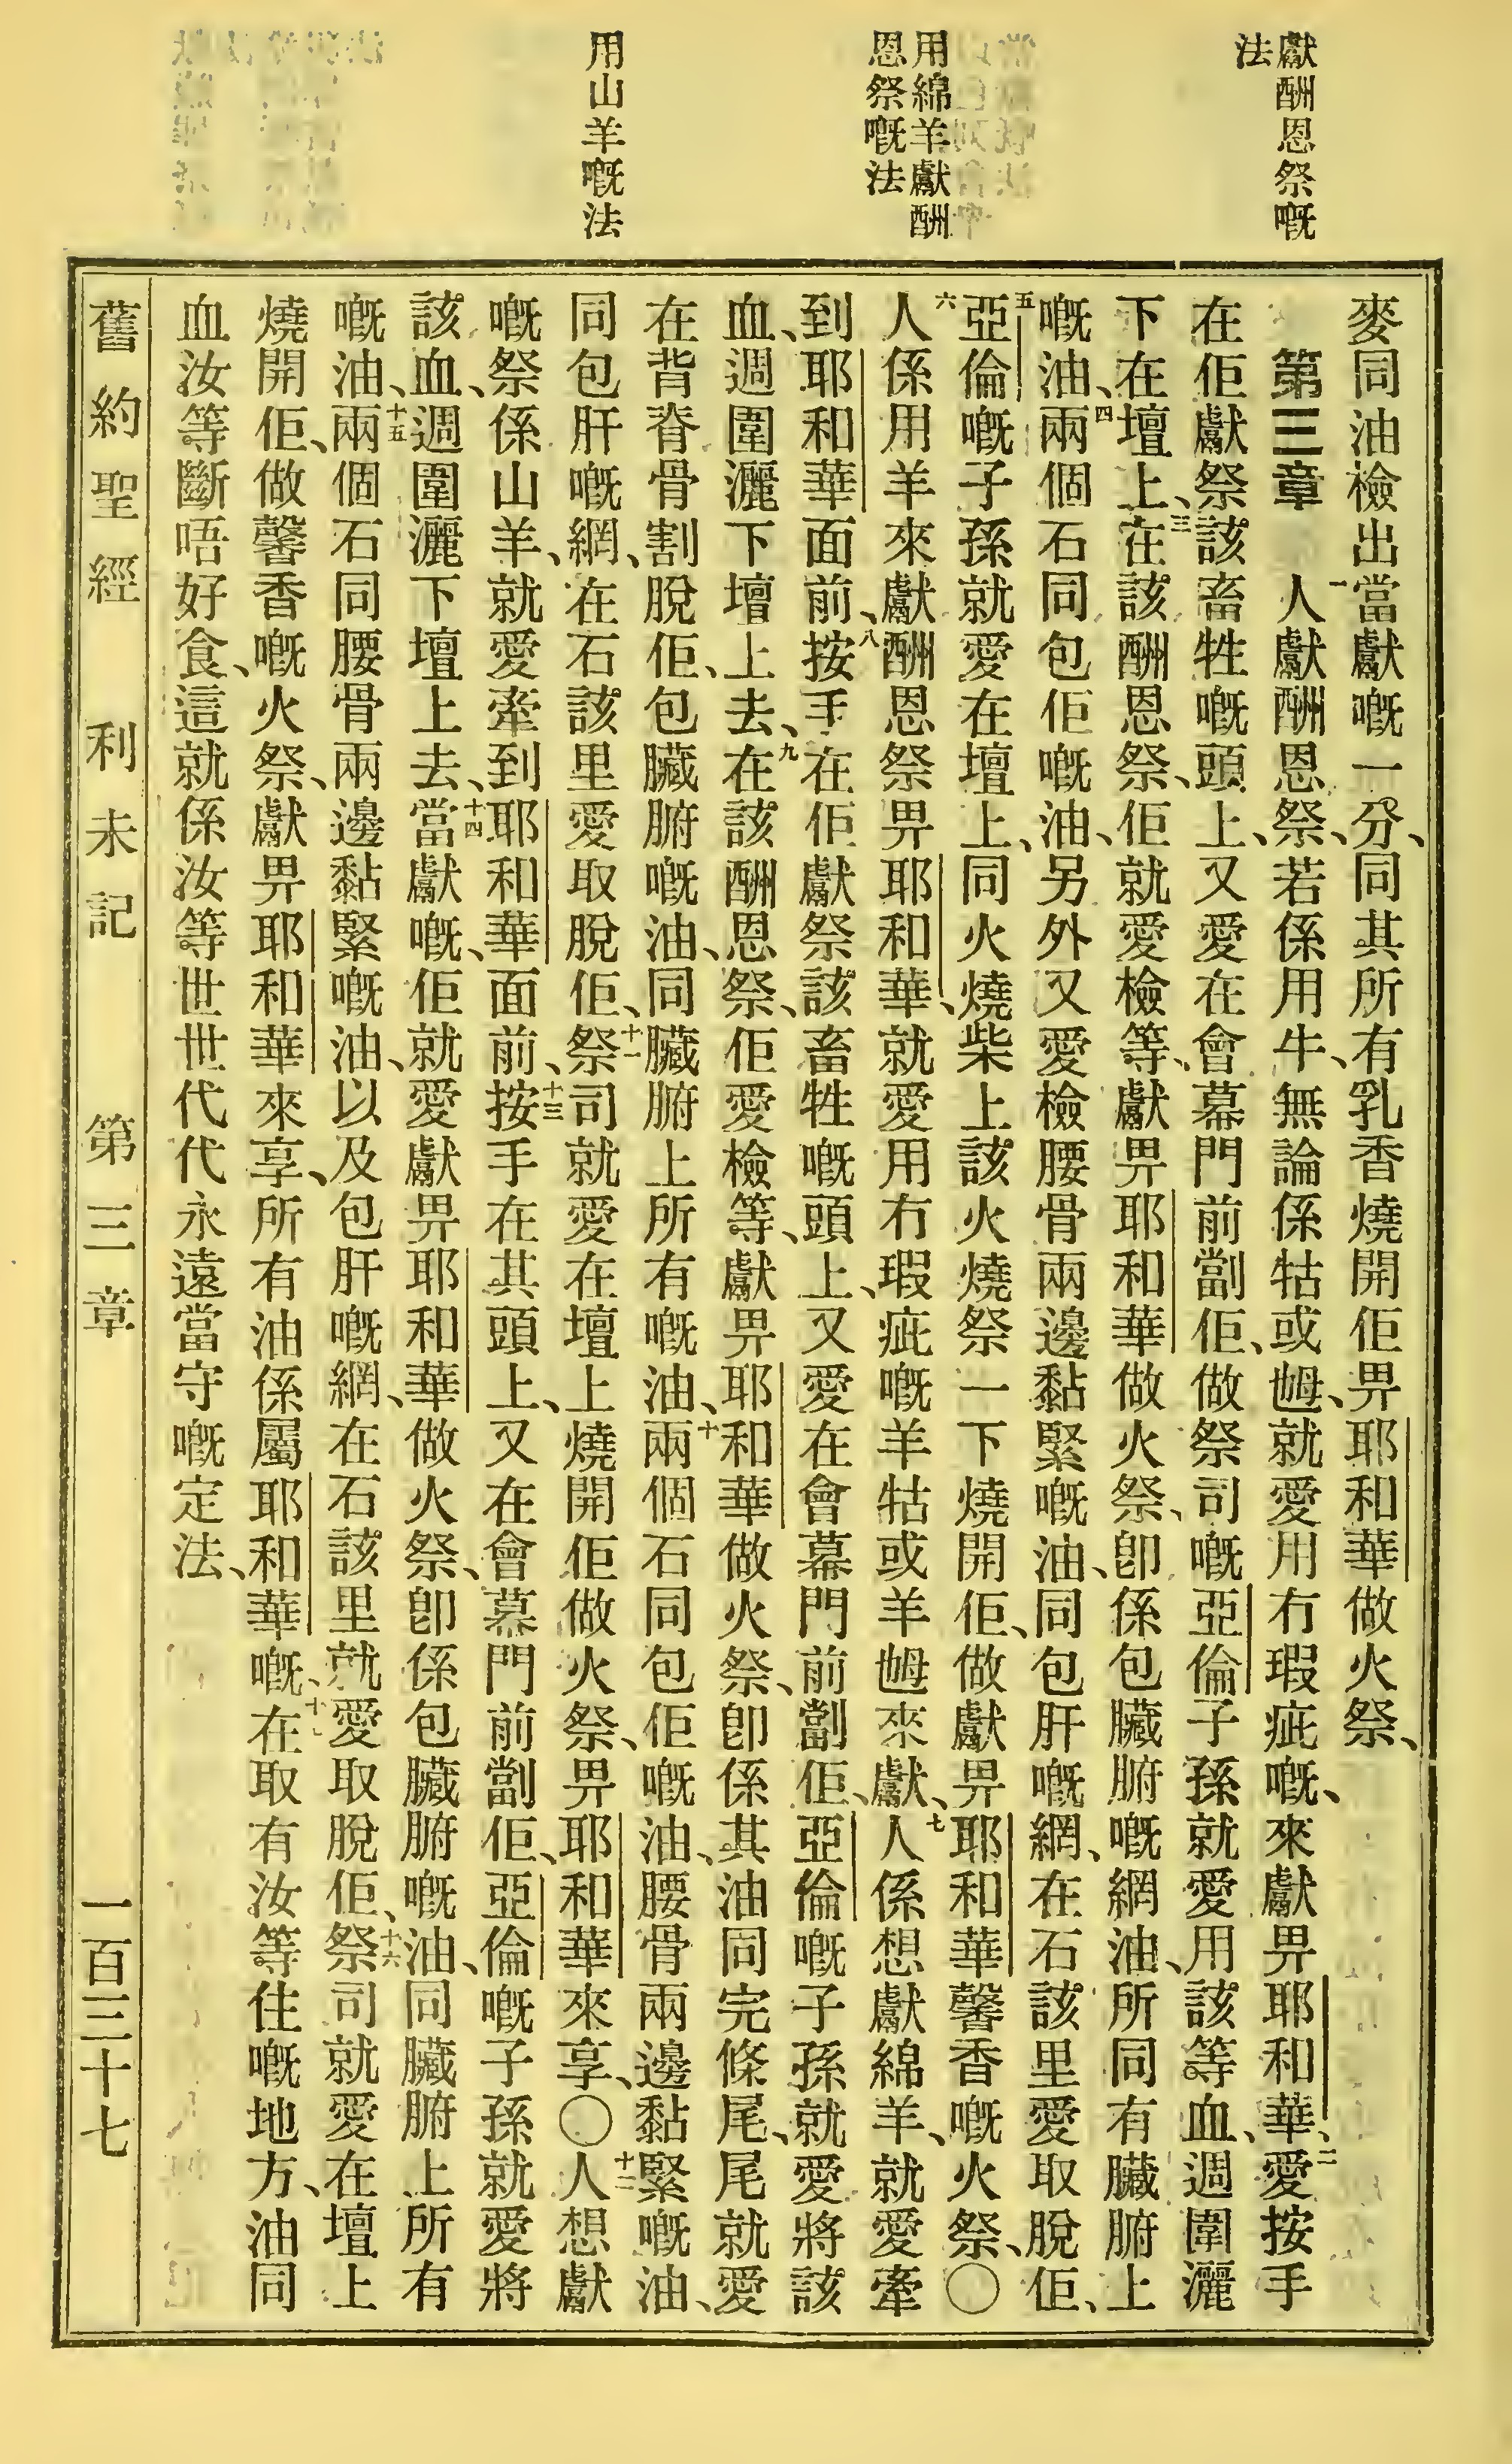 獻酬恩祭嘅
法
用綿羊獻酬
恩祭嘅法
用山羊嘅法
麥同油檢出當獻嘅一分、同其所有乳香燒開佢畀耶和華做火祭、
第三章 一人獻酬恩祭、若係用牛、無論係牯或𡜵、就愛用冇瑕疵嘅、來獻畀耶和華、二愛按手
在佢獻祭該畜牲嘅頭上、又愛在會幕門前劏佢、做祭司嘅亞倫子孫就愛用該等血、週圍灑
下在壇上、三在該酬恩祭、佢就愛檢等、獻畀耶和華做火祭、卽係包臟腑嘅網油、所同有臟腑上
嘅油、四兩個石同包佢嘅油、另外又愛檢腰骨兩邊黏緊嘅油、同包肝嘅網、在石該里愛取脫佢、
五亞倫嘅子孫就愛在壇上、同火燒柴上該火燒祭一下燒開佢、做獻畀耶和華馨香嘅火祭、〇
六人係用羊來獻酬恩祭畀耶和華、就愛用冇瑕疵嘅羊牯或羊𡜵來獻、七人係想獻綿羊、就愛牽
到耶和華面前、八按手在佢獻祭該畜牲嘅頭上、又愛在會幕門前劏佢、亞倫嘅子孫就愛將該
血、週圍灑下壇上去、九在該酬恩祭、佢愛檢等、獻畀耶和華做火祭、卽係其油同完條尾、尾就愛
在背脊骨割脫佢、包臟腑嘅油、同臟腑上所有嘅油、十兩個石同包佢嘅油、腰骨兩邊黏緊嘅油、
同包肝嘅網、在石該里愛取脫佢、十一祭司就愛在壇上燒開佢做火祭、畀耶和華來享、〇十二人想獻
嘅祭係山羊、就愛牽到耶和華面前、十三按手在其頭上、又在會幕門前劏佢、亞倫嘅子孫就愛將
該血、週圍灑下壇上去、十四當獻嘅、佢就愛獻畀耶和華做火祭、卽係包臟腑嘅油、同臟腑上所有
嘅油、十五兩個石同腰骨兩邊黏緊嘅油、以及包肝嘅網、在石該里就愛取脫佢、十六祭司就愛在壇上
燒開佢、做馨香嘅火祭、獻畀耶和華來享、所有油係屬耶和華嘅、在取有汝等住嘅地方、油同
血汝等斷唔好食、這就係汝等世世代代永遠當守嘅定法、
舊約聖經 利未記 第三章 一百三十七